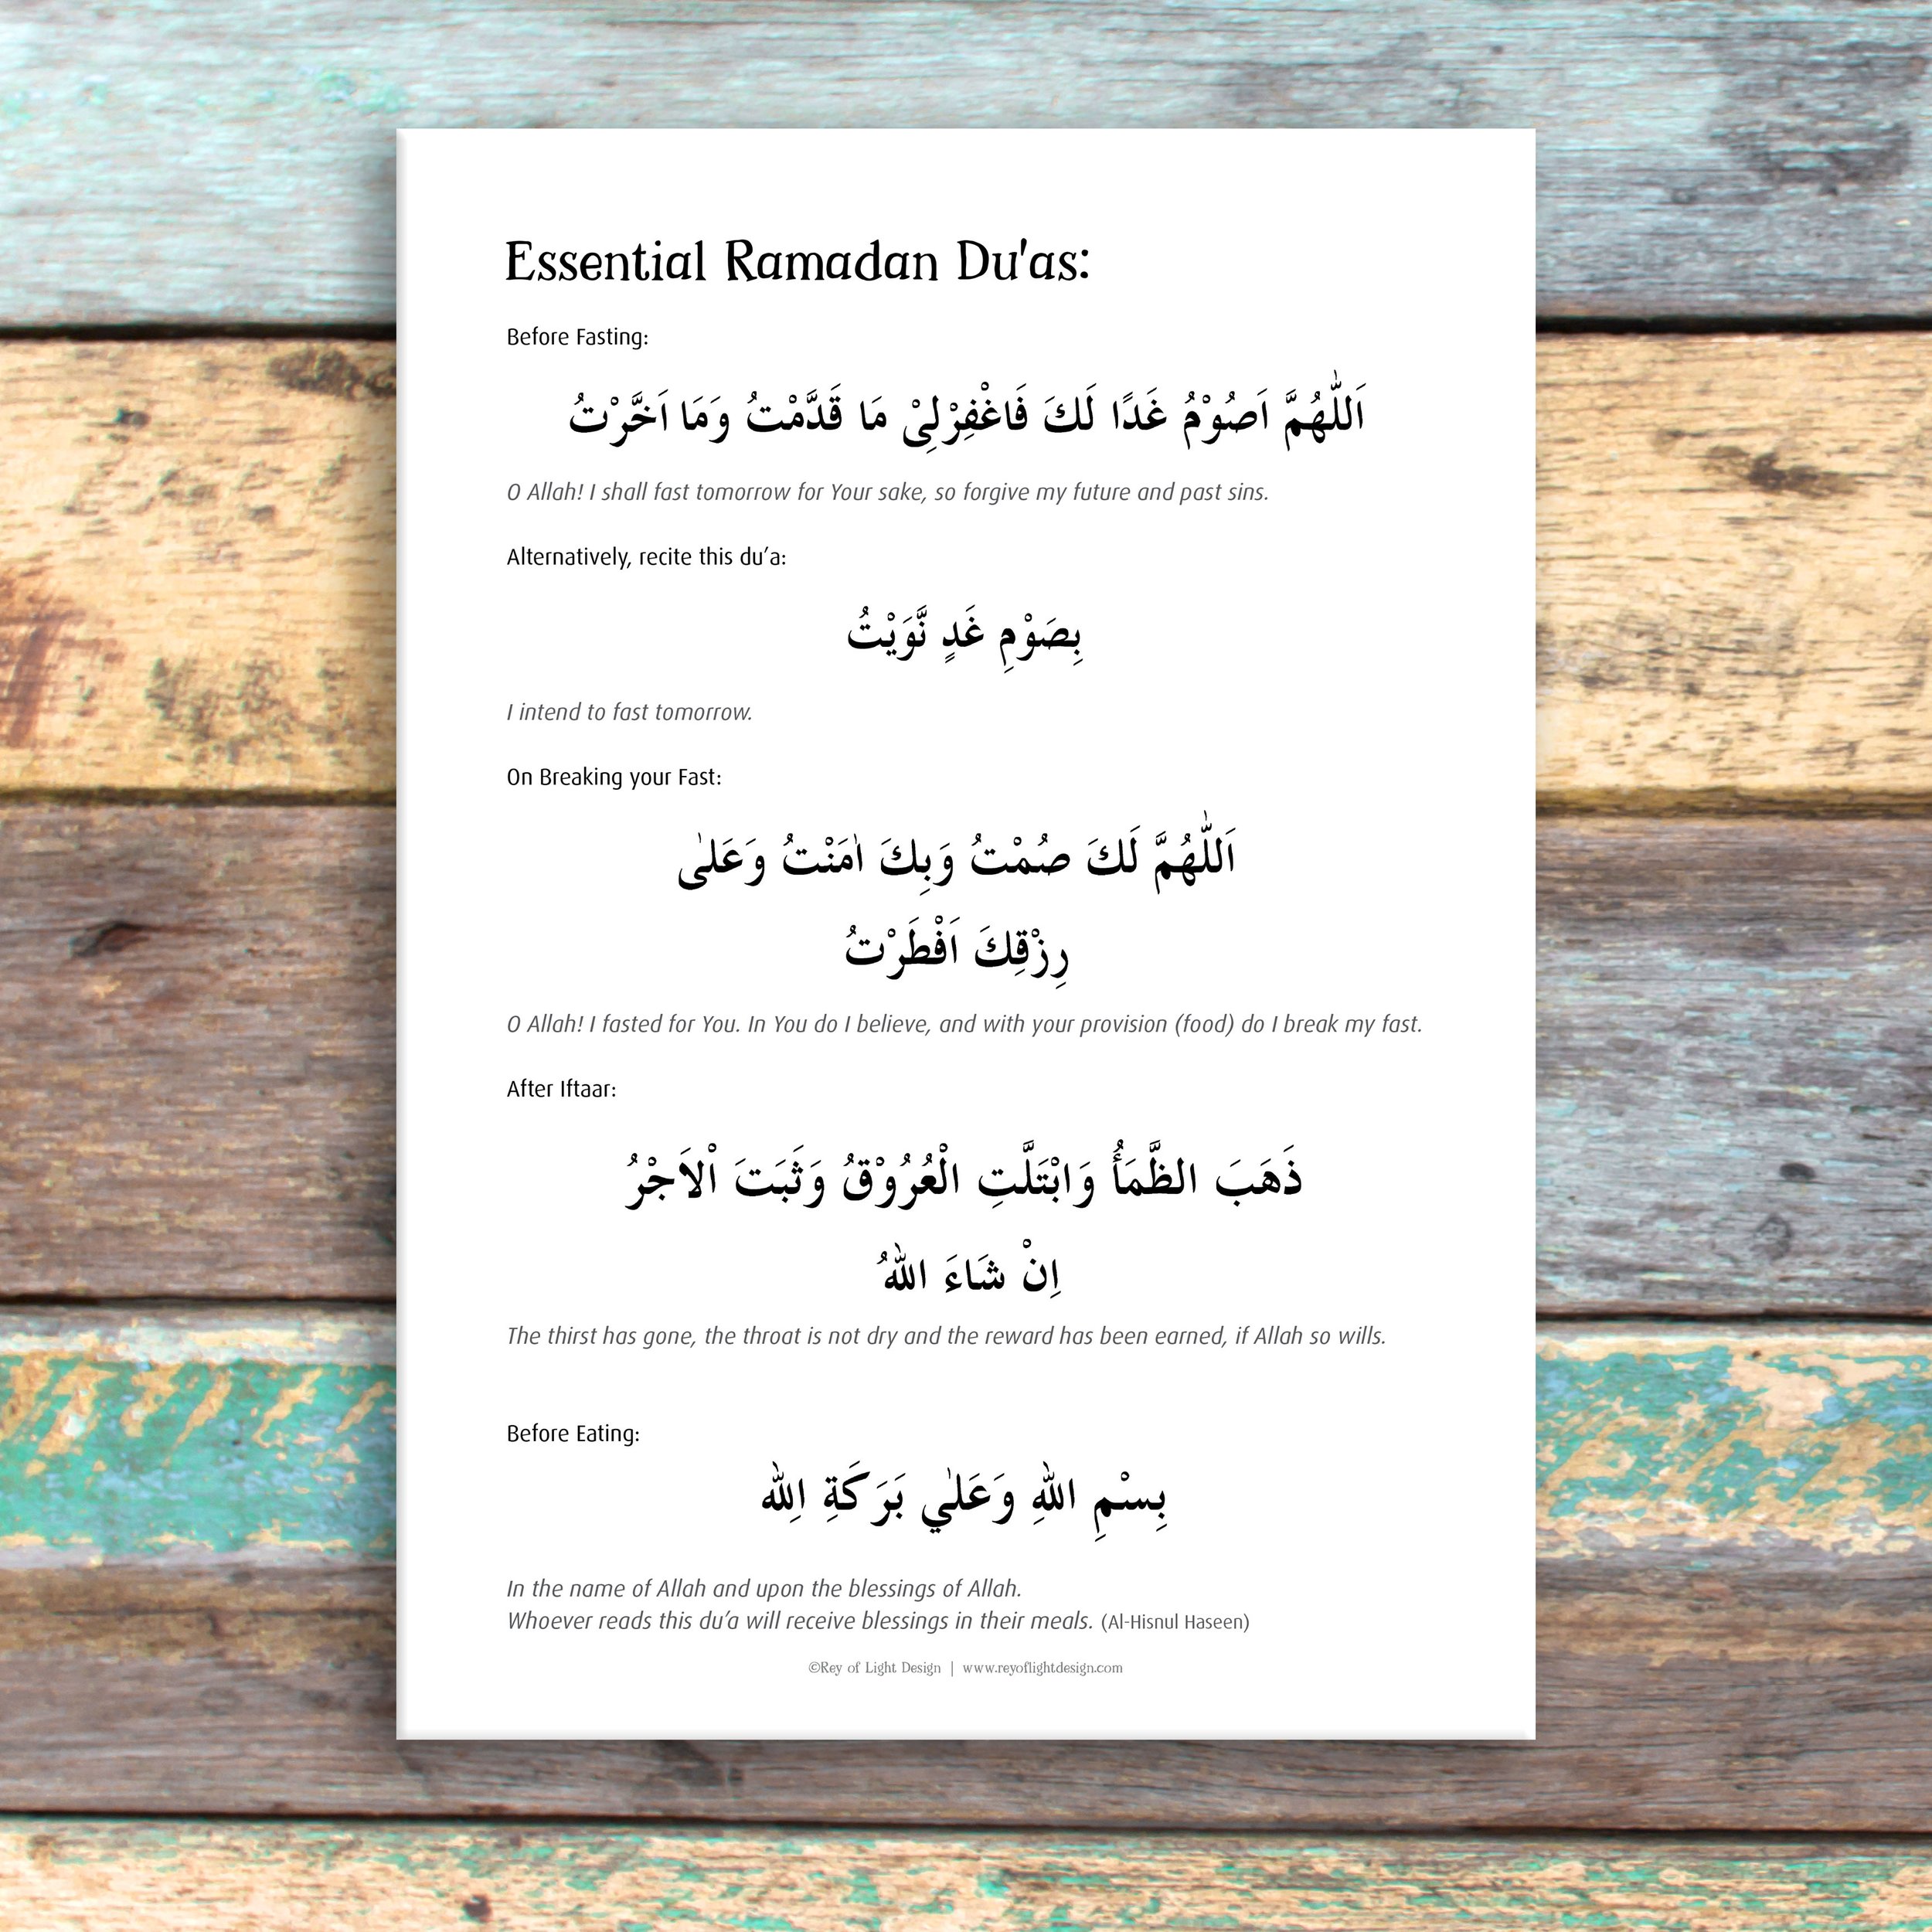 Essential Ramadan Du'as:
Before Fasting:
اَللّٰهُمَّ اَصُوْمُ غَدًا لَكَ فَاغْفِرْلِیْ مَا قَدَّمْتُ وَمَا اَخَّرْتُ
O Allah! I shall fast tomorrow for Your sake, so forgive my future and past sins.
Alternatively, recite this du’a:
بِصَوْمِ غَدٍ نَّوَيْتُ
I intend to fast tomorrow.
On Breaking your Fast:
اَللّٰهُمَّ لَكَ صُمْتُ وَبِكَ اٰمَنْتُ وَعَلىٰ
رِزْقِكَ اَفْطَرْتُ
O Allah! I fasted for You. In You do I believe, and with your provision (food) do I break my fast.
After Iftaar:
ذَهَبَ الظَّمَأُ وَابْتَلَّتِ الْعُرُوْقُ وَثَبَتَ اْلاَجْرُ
اِنْ شَاءَ اللهُ
The thirst has gone, the throat is not dry and the reward has been earned, if Allah so wills.
Before Eating:
بِسْمِ اللهِ وَعَلٰي بَرَكَةِ اِلله
In the name of Allah and upon the blessings of Allah.
Whoever reads this du’a will receive blessings in their meals. (Al-Hisnul Haseen)
©Rey of Light Design | www.reyoflightdesign.com